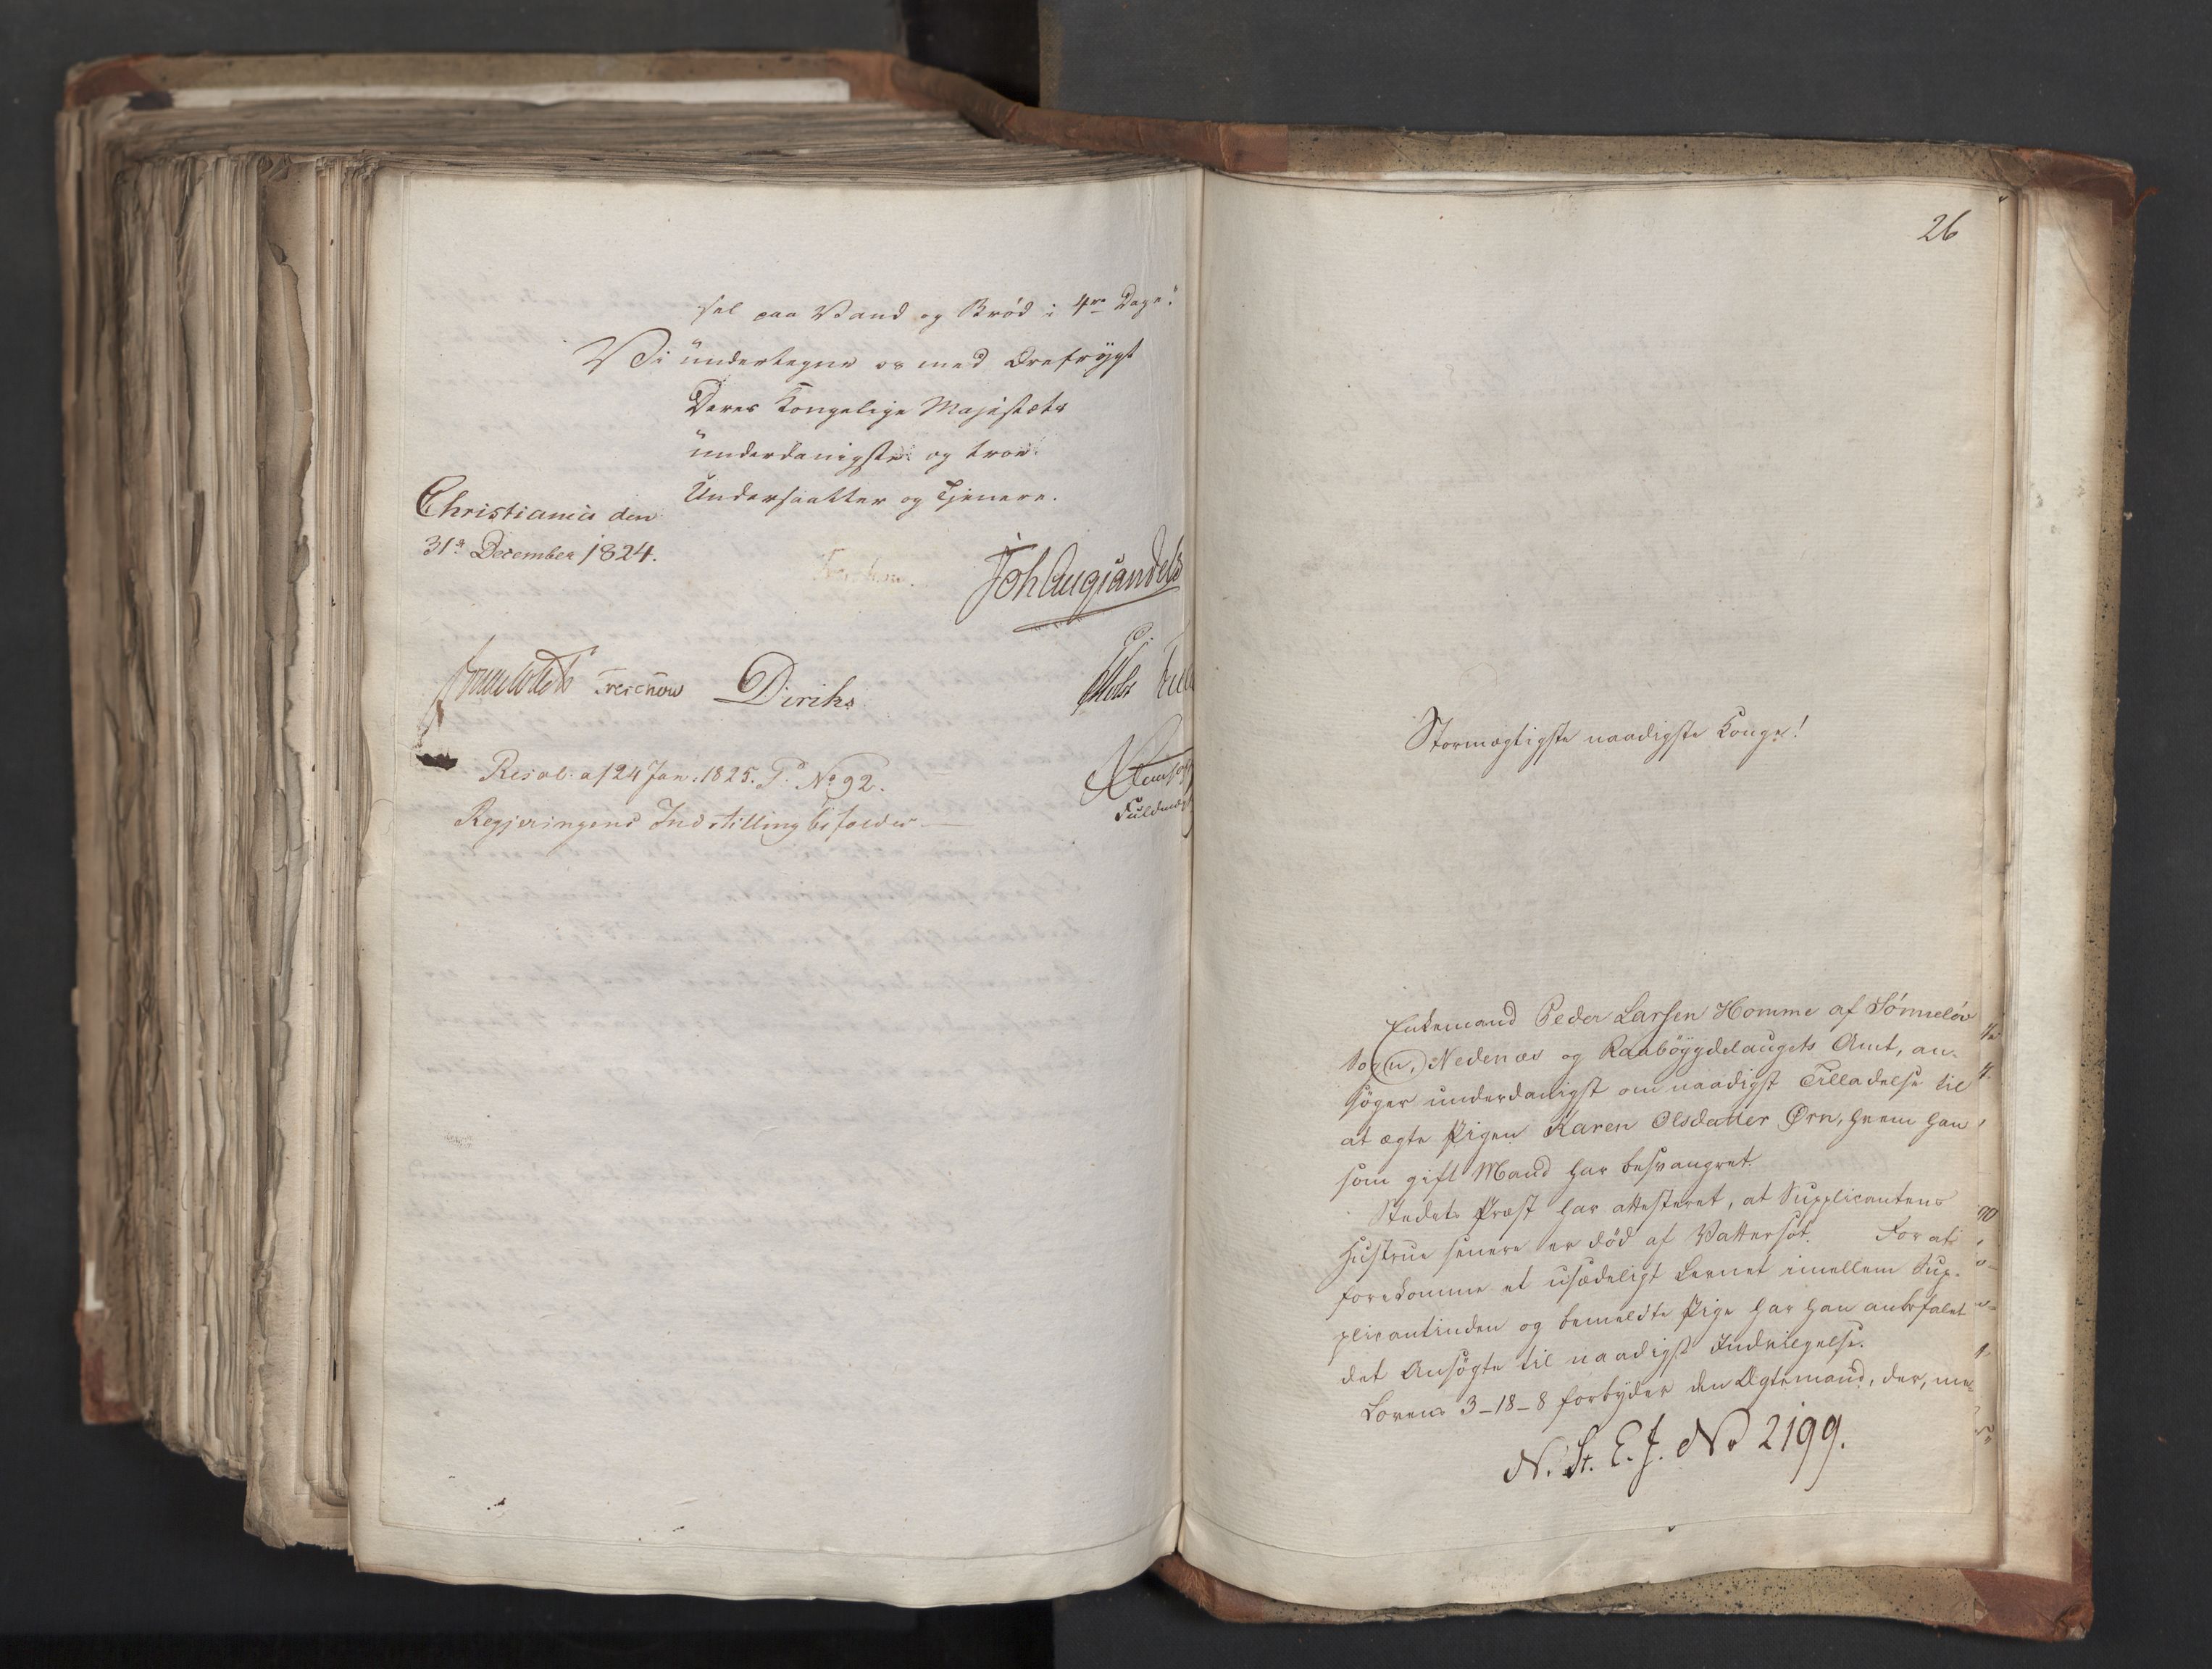 sel paa Vand og Brød i 4re Dage."
Vi undertegne os med Ærefrygt
Deres Kongelige Majestæts
underdanigste og troe
Undersaatter og Tjenere.
Christiania den
31te December 1824.
Joh Aug Sandels
Treschow Diriks
Resol. af 24 Jan. 1825. P. No 92.
Regjeringens Indstilling bifaldes.
Fuldmægt
26
Stormægtigste naadigste Konge!
Enkemand Peder Larsen Homme af Sønneløv
Sogn, Nedenæs og Raabøygdelaugets Amt, an-
søger underdanigst om naadigst Tilladelse til
at ægte Pigen Karen Olsdatter Ørn, hvem han
som gift Mand har besvangret.
Stedets Præst har attesteret, at Supplicantens
Hustrue senere er død af Vattersot. For at
forekomme et usædeligt Levnet imellem Sup-
plicantinden og bemeldte Pige har han anbefalet
det Ansøgte til naadigst Indvilgelse.
Lovens 3-18-8 forbyder den Ægtemand, der, me-
N. St. E. J. No 2199.